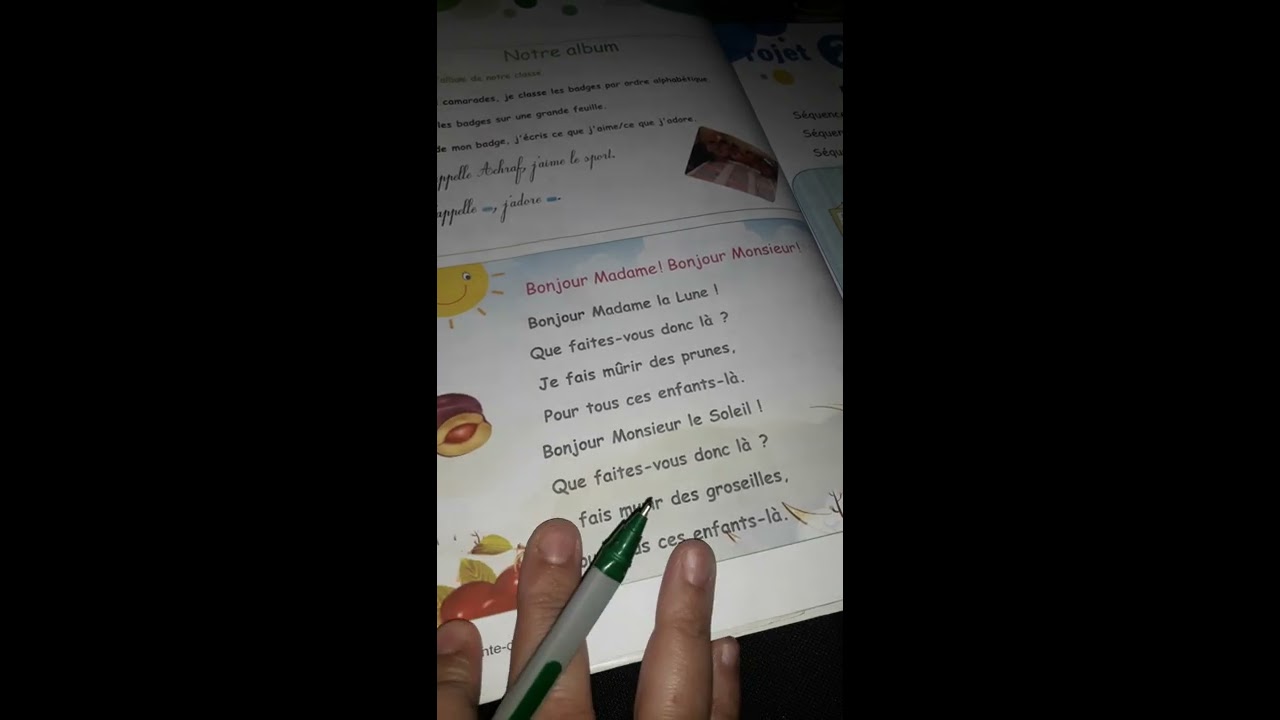 Notre album
l'album de notre classe.
camarades, je classe les badges par ordre alphabétique.
les badges sur une grande feuille.
de mon badge, j'écris ce que j'aime/ce que j'adore.
appelle Achraf, j'aime le sport.
appelle , j'adore .
Bonjour Madame! Bonjour Monsieur!
Bonjour Madame la Lune !
Que faites-vous donc là ?
Je fais mûrir des prunes,
Pour tous ces enfants-là.
Bonjour Monsieur le Soleil !
Que faites-vous donc là ?
fais mûrir des groseilles,
ces enfants-là.
rojet 2
Séquence
Séquen
Séqu